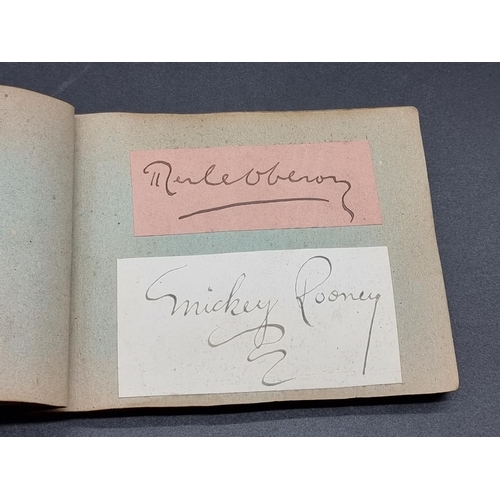 Merle Oberon
Mickey Rooney